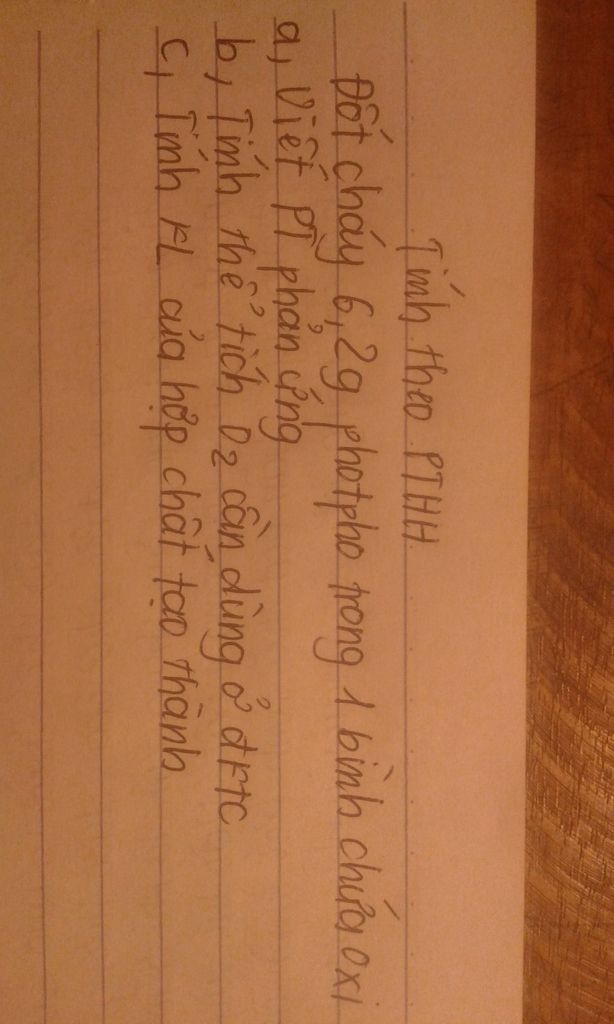 Tính theo PTHH
Đốt cháy 6,2g photpho trong 1 bình chứa oxi
a, Viết PT phản ứng
b, Tính thể tích O2 cần dùng ở đktc
c, Tính KL của hợp chất tạo thành